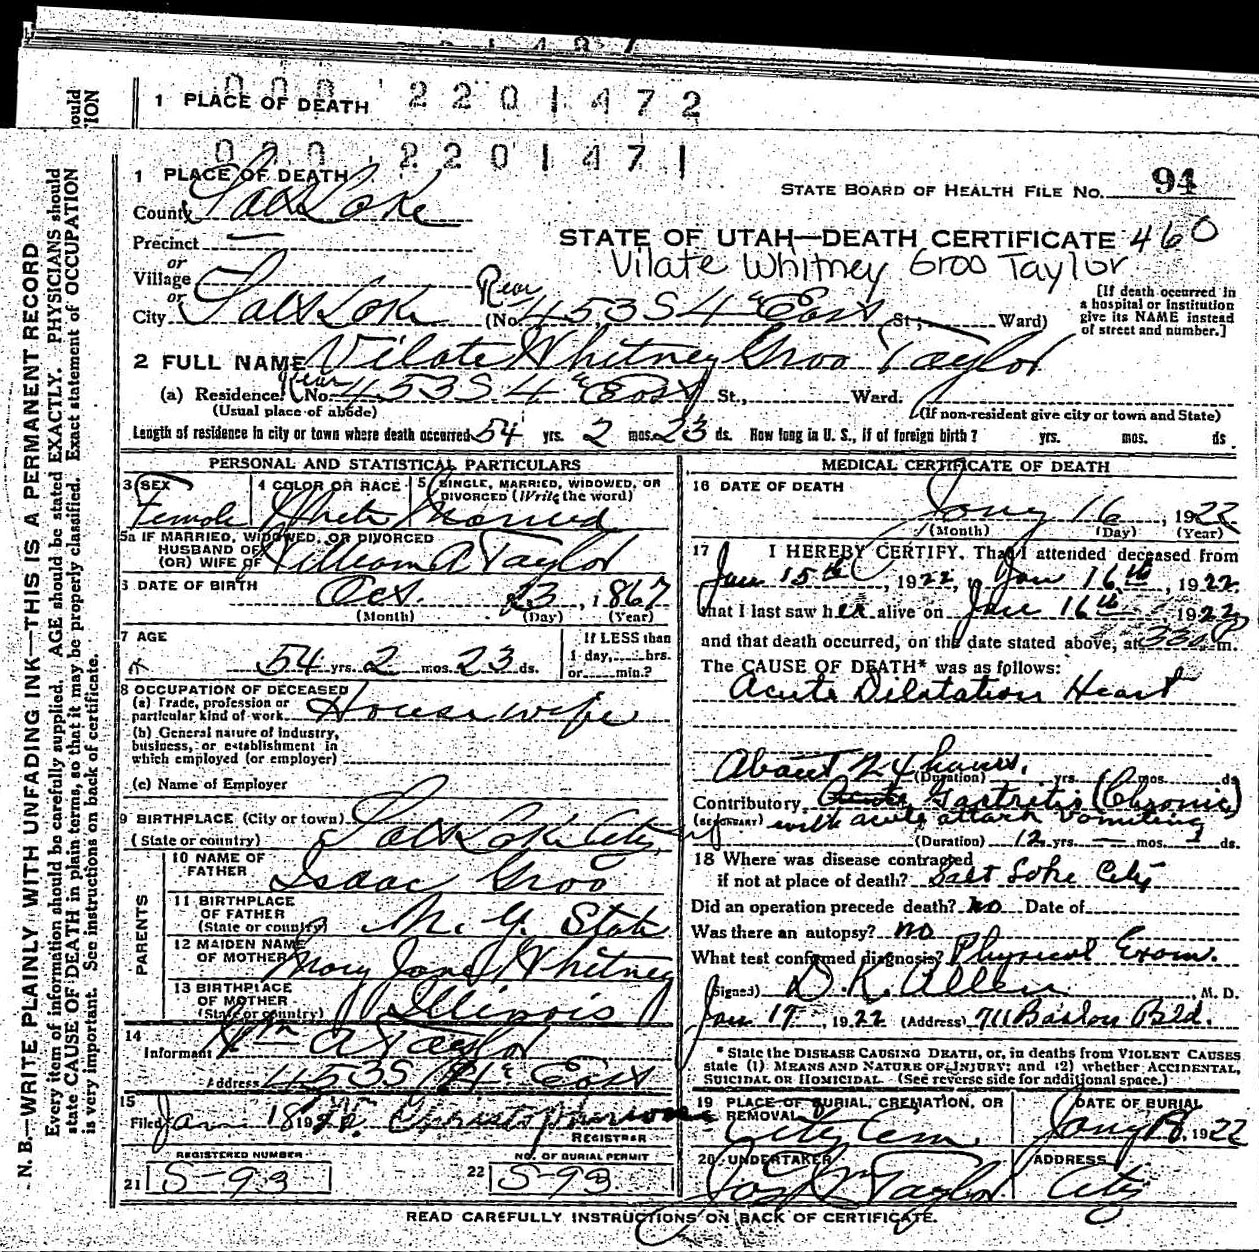 1 PLACE OF DEATH 000 2201472
000 2201471
1 PLACE OF DEATH
STATE BOARD OF HEALTH FILE No. 94
County Salt Lake
STATE OF UTAH—DEATH CERTIFICATE 460
Precinct —
Vilate Whitney Groo Taylor
or
Village
or
City Salt Lake (No. Rear 453 S 4th East St.; Ward)
[If death occurred in a hospital or institution give its NAME instead of street and number.]
2 FULL NAME Vilate Whitney Groo Taylor
(a) Residence. (No. Rear 453 S 4th East St., Ward.
(Usual place of abode) (If non-resident give city or town and State)
Length of residence in city or town where death occurred 54 yrs. 2 mos. 23 ds. How long in U. S., if of foreign birth? yrs. mos. ds.
PERSONAL AND STATISTICAL PARTICULARS
3 SEX Female
4 COLOR OR RACE White
5 SINGLE, MARRIED, WIDOWED, OR DIVORCED (Write the word) Married
5a IF MARRIED, WIDOWED, OR DIVORCED
HUSBAND OF
(OR) WIFE OF William A Taylor
6 DATE OF BIRTH Oct. 23, 1867
(Month) (Day) (Year)
7 AGE 54 yrs. 2 mos. 23 ds.
If LESS than
1 day, hrs.
or min.?
8 OCCUPATION OF DECEASED
(a) Trade, profession or
particular kind of work Housewife
(b) General nature of industry,
business, or establishment in
which employed (or employer)
(c) Name of Employer
9 BIRTHPLACE (City or town) Salt Lake City
(State or country)
PARENTS
10 NAME OF
FATHER Isaac Groo
11 BIRTHPLACE
OF FATHER
(State or country) N. Y. State
12 MAIDEN NAME
OF MOTHER Mary Jane Whitney
13 BIRTHPLACE
OF MOTHER
(State or country) Illinois
14
Informant Wm A Taylor
Address 453 S 4th East
15
Filed Jan 18 1922
REGISTRAR
REGISTERED NUMBER
21 S-93
NO. OF BURIAL PERMIT
22 S-93
MEDICAL CERTIFICATE OF DEATH
16 DATE OF DEATH
Jany 16, 1922
(Month) (Day) (Year)
17 I HEREBY CERTIFY, That I attended deceased from
Jan 15th, 1922, to Jan 16th, 1922
that I last saw her alive on Jan 16th 1922
and that death occurred, on the date stated above, at 330 P m.
The CAUSE OF DEATH* was as follows:
Acute Dilatation Heart
About 24 hours.
(Duration) yrs. mos. ds
Contributory Acute Gastritis (Chronic)
(SECONDARY) with acute attack vomiting
(Duration) 12 yrs. — mos. 1 ds.
18 Where was disease contracted
if not at place of death? Salt Lake City
Did an operation precede death? no Date of
Was there an autopsy? no
What test confirmed diagnosis? Physical Exam.
(Signed) D. K. Allen, M. D.
Jan 17, 1922 (Address) 711 Boston Bld.
* State the DISEASE CAUSING DEATH, or, in deaths from VIOLENT CAUSES
state (1) MEANS AND NATURE OF INJURY; and (2) whether ACCIDENTAL,
SUICIDAL OR HOMICIDAL. (See reverse side for additional space.)
19 PLACE OF BURIAL, CREMATION, OR
REMOVAL City Cem.
DATE OF BURIAL
Jany 18, 1922
20 UNDERTAKER Jos Wm Taylor
ADDRESS City
READ CAREFULLY INSTRUCTIONS ON BACK OF CERTIFICATE.
N. B.—WRITE PLAINLY WITH UNFADING INK—THIS IS A PERMANENT RECORD
Every item of information should be carefully supplied. AGE should be stated EXACTLY. PHYSICIANS should
state CAUSE OF DEATH in plain terms, so that it may be properly classified. Exact statement of OCCUPATION
is very important. See instructions on back of certificate.